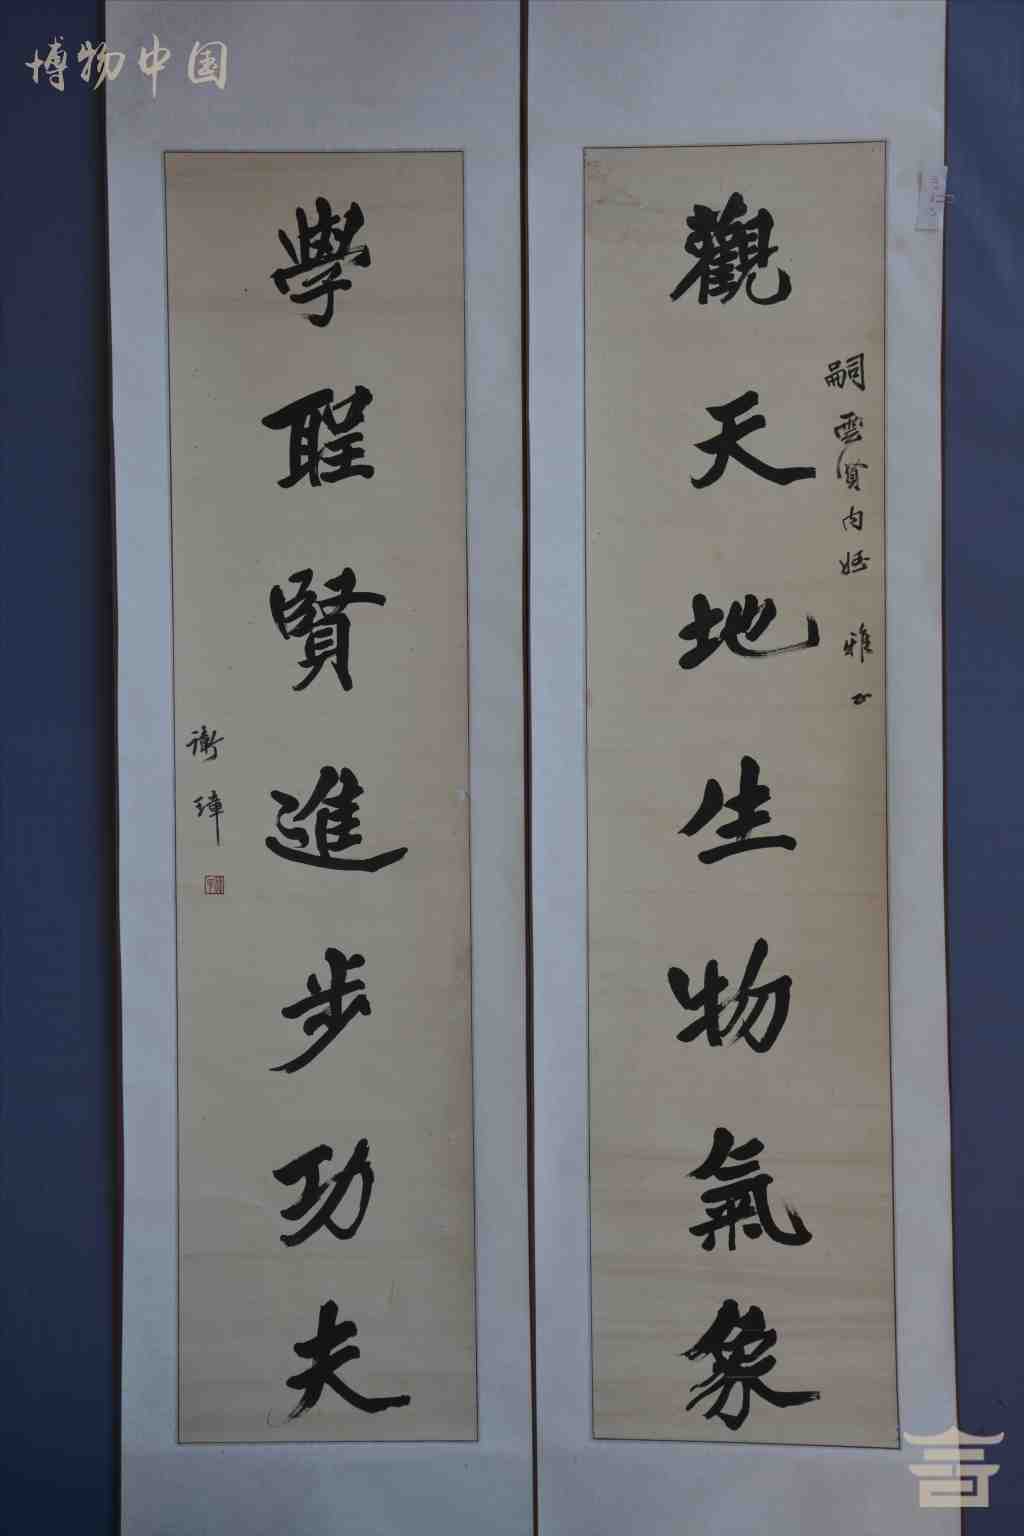 博物中国
觀天地生物氣象
嗣雲賢内姪 雅正
學聖賢進步功夫
衡璋